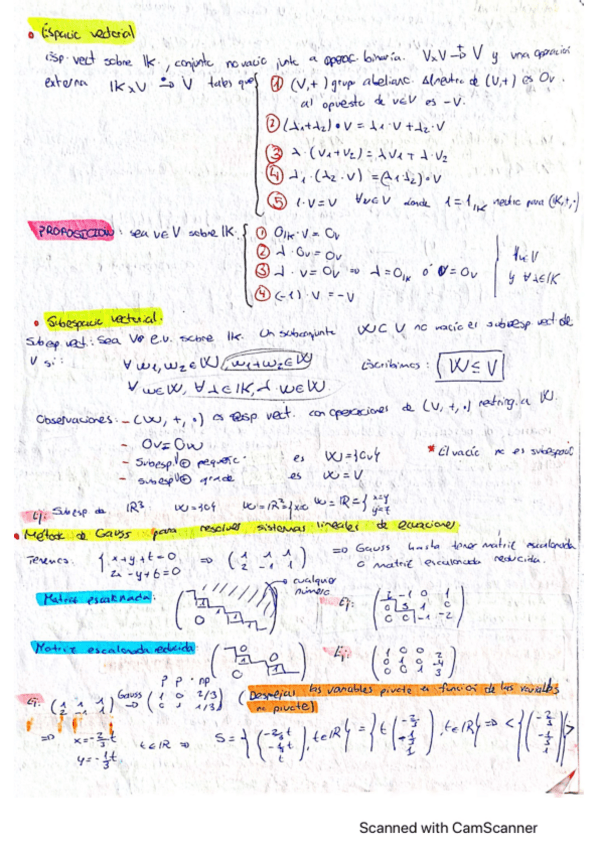 • Espacio vectorial
Esp. vect sobre IK, conjunto no vacío junto a operac. binaria. V×V →⁺ V y una operación
externa IK×V →· V tales que
① (V,+) grupo abeliano. El neutro de (V,+) es 0v.
al opuesto de v∈V es -v.
② (λ1+λ2)·v = λ1·v+λ2·v
③ λ·(v1+v2) = λv1 + λ·v2
④ λ1·(λ2·v) = (λ1·λ2)·v
⑤ 1·v=v ∀v∈V donde 1=1IK neutro para (IK,+,·)
PROPOSICION: sea v∈V sobre IK.
① 0IK·v=0v
② λ·0v=0v
③ λ·v=0v ⇒ λ=0IK ó v=0v
④ (-1)·v=-v
∀v∈V
y ∀λ∈IK
• Subespacio vectorial.
Subesp vect: sea V e.v. sobre IK. Un subconjunto W⊂V no vacío es subesp vect de
V si:
∀w1,w2∈W, w1+w2∈W
∀w∈W, ∀λ∈IK, λ·w∈W
Escribimos: W≤V
Observaciones: - (W,+,·) es esp. vect. con operaciones de (V,+,·) restring. a W.
- 0v=0w
- Subesp. V pequeño es W={0v}
- subesp V grande es W=V
* El vacío no es subespacio
Ej: Subesp de IR³ W={0} W=IR² W=IR={x=y y=z
• Método de Gauss para resolver sistemas lineales de ecuaciones.
Tenemos: {x+y+t=0 2x-y+t=0 ⇒ (1 1 1 2 -1 1) ⇒ Gauss hasta tener matriz escalonada
o matriz escalonada reducida.
Matriz escalonada: cualquier
número
Ej: (2 -1 0 1 0 3 1 0 0 0 -1 -2)
Matriz escalonada reducida: Ej: (1 0 0 2 0 1 0 -4 0 0 1 3)
p p np
Ej: (1 1 1 2 -1 1) Gauss → (1 0 2/3 0 1 1/3) (Despejar las variables pivote en función de las variables
no pivote)
⇒ x=-2/3 t
y=-1/3 t
t∈IR ⇒ S={(-2/3 t -1/3 t t), t∈IR}={t(-2/3 -1/3 1), t∈IR} ⇒ <{(-2/3 -1/3 1)}>
Scanned with CamScanner